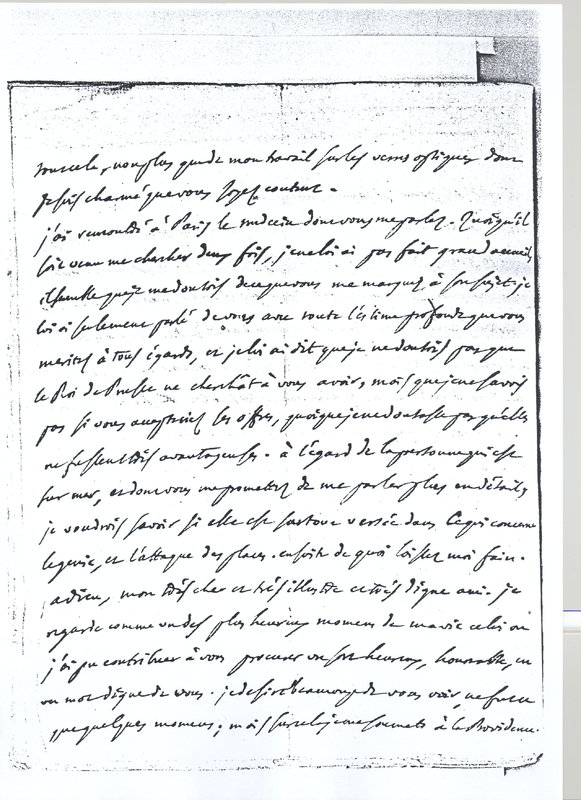 tout cela, non plus que de mon travail sur les verres optiques dont
je suis charmé que vous soyez content.
j'ai rencontré à Paris le médecin dont vous me parlez. Quoiqu'il
soit venu me chercher deux fois, je ne lui ai pas fait grand accueil,
il semble que je me doutois de ce que vous me marquez à son sujet. je
lui ai seulement parlé de vous avec toute l'estime profonde que vous
meritez à tous égards, et je lui ai dit que je ne doutois pas que
le Roi de Prusse ne cherchât à vous avoir, mais que je ne savois
pas si vous accepteriez ses offres, quoique je ne doutasse pas qu'elles
ne fussent très avantageuses. à l'égard de la personne qui est
sur mer, et dont vous me promettez de me parler plus en détail,
je voudrois savoir si elle est surtout versée dans ce qui concerne
le genie, et l'attaque des places. ensuite de quoi laissez moi faire.
adieu, mon très cher et très illustre et très digne ami. je
regarde comme un des plus heureux momens de ma vie celui où
j'ai pu contribuer à vous procurer un sort heureux, honorable, en
un mot digne de vous. je desire beaucoup de vous voir, ne fut ce
que quelques momens; mais sur cela je me soumets à la Providence.